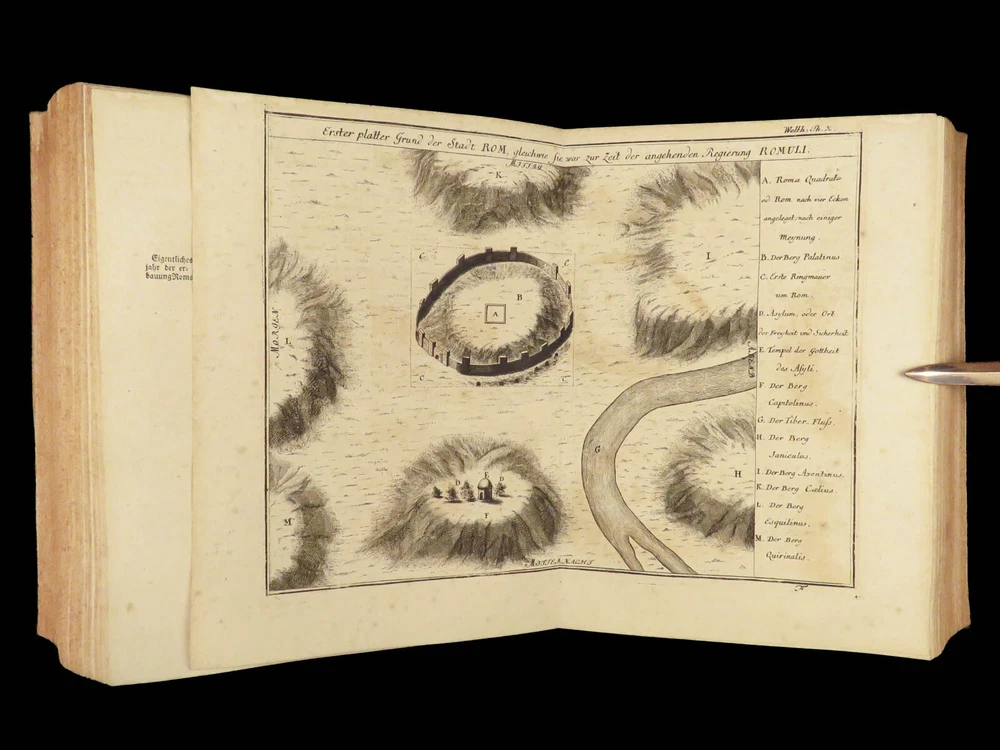 Eigentliches
jahr der er-
bauung Roms
Welth. Th. X.
Erster platter Grund der Stadt ROM, gleichwie sie war zur Zeit der angehenden Regierung ROMULI.
MITTAG
K
A. Roma Quadrata
od Rom nach vier Ecken
angeleget nach einiger
Meynung.
B. Der Berg Palatinus
C. Erste Ringmauer
um Rom.
D. Asylum, oder Ort
der Freyheit und Sicherheit
E. Tempel der Gottheit
des Asyli.
F. Der Berg
Capitolinus.
G. Der Tiber Fluss.
H. Der Berg
Janiculus.
I. Der Berg Aventinus.
K. Der Berg Cœlius.
L. Der Berg
Esquilinus.
M. Der Berg
Quirinalis.
C
C
I
B
A
MORGEN
L
C
C
G
H
D
E
D
F
M
MITTERNACHT